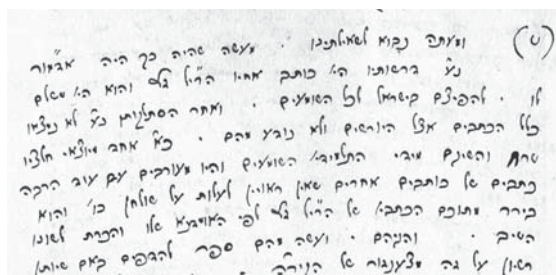 (ט) ומעתה נבוא לשאילתינו . מעשה שהיה כך היה אדמו״ר
נ״ע דרשותיו הי׳ כותב אחיו הר״יל ז״ל והוא הי׳ משלם
לו . להפיצם בישראל לכל השומעים . ואחר הסתלקותו נ״ע לא נמצאו
כלל הכתבים אצל היורשים ולא נודע מהם . כ״א אחד מיוצאי חלציו
טרח והשיגם מידי התלמידי׳ השומעים והיו מעורבים עם עוד הרבה
כתבים של כותבים אחרים שאין ראוין לעלות על שולחן כו׳ והוא
בירר מתוכם הכתבים של הר״יל ז״ל לפי האומדנא שלו והכרת לשונו
הטיב . והניהם . ועשה מהם ספר להדפיס באם שיותן
רשיון על זה